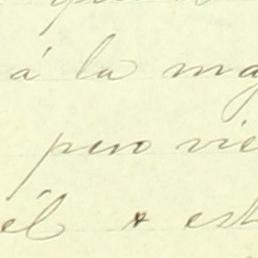 á la ma
pero vie
él * est